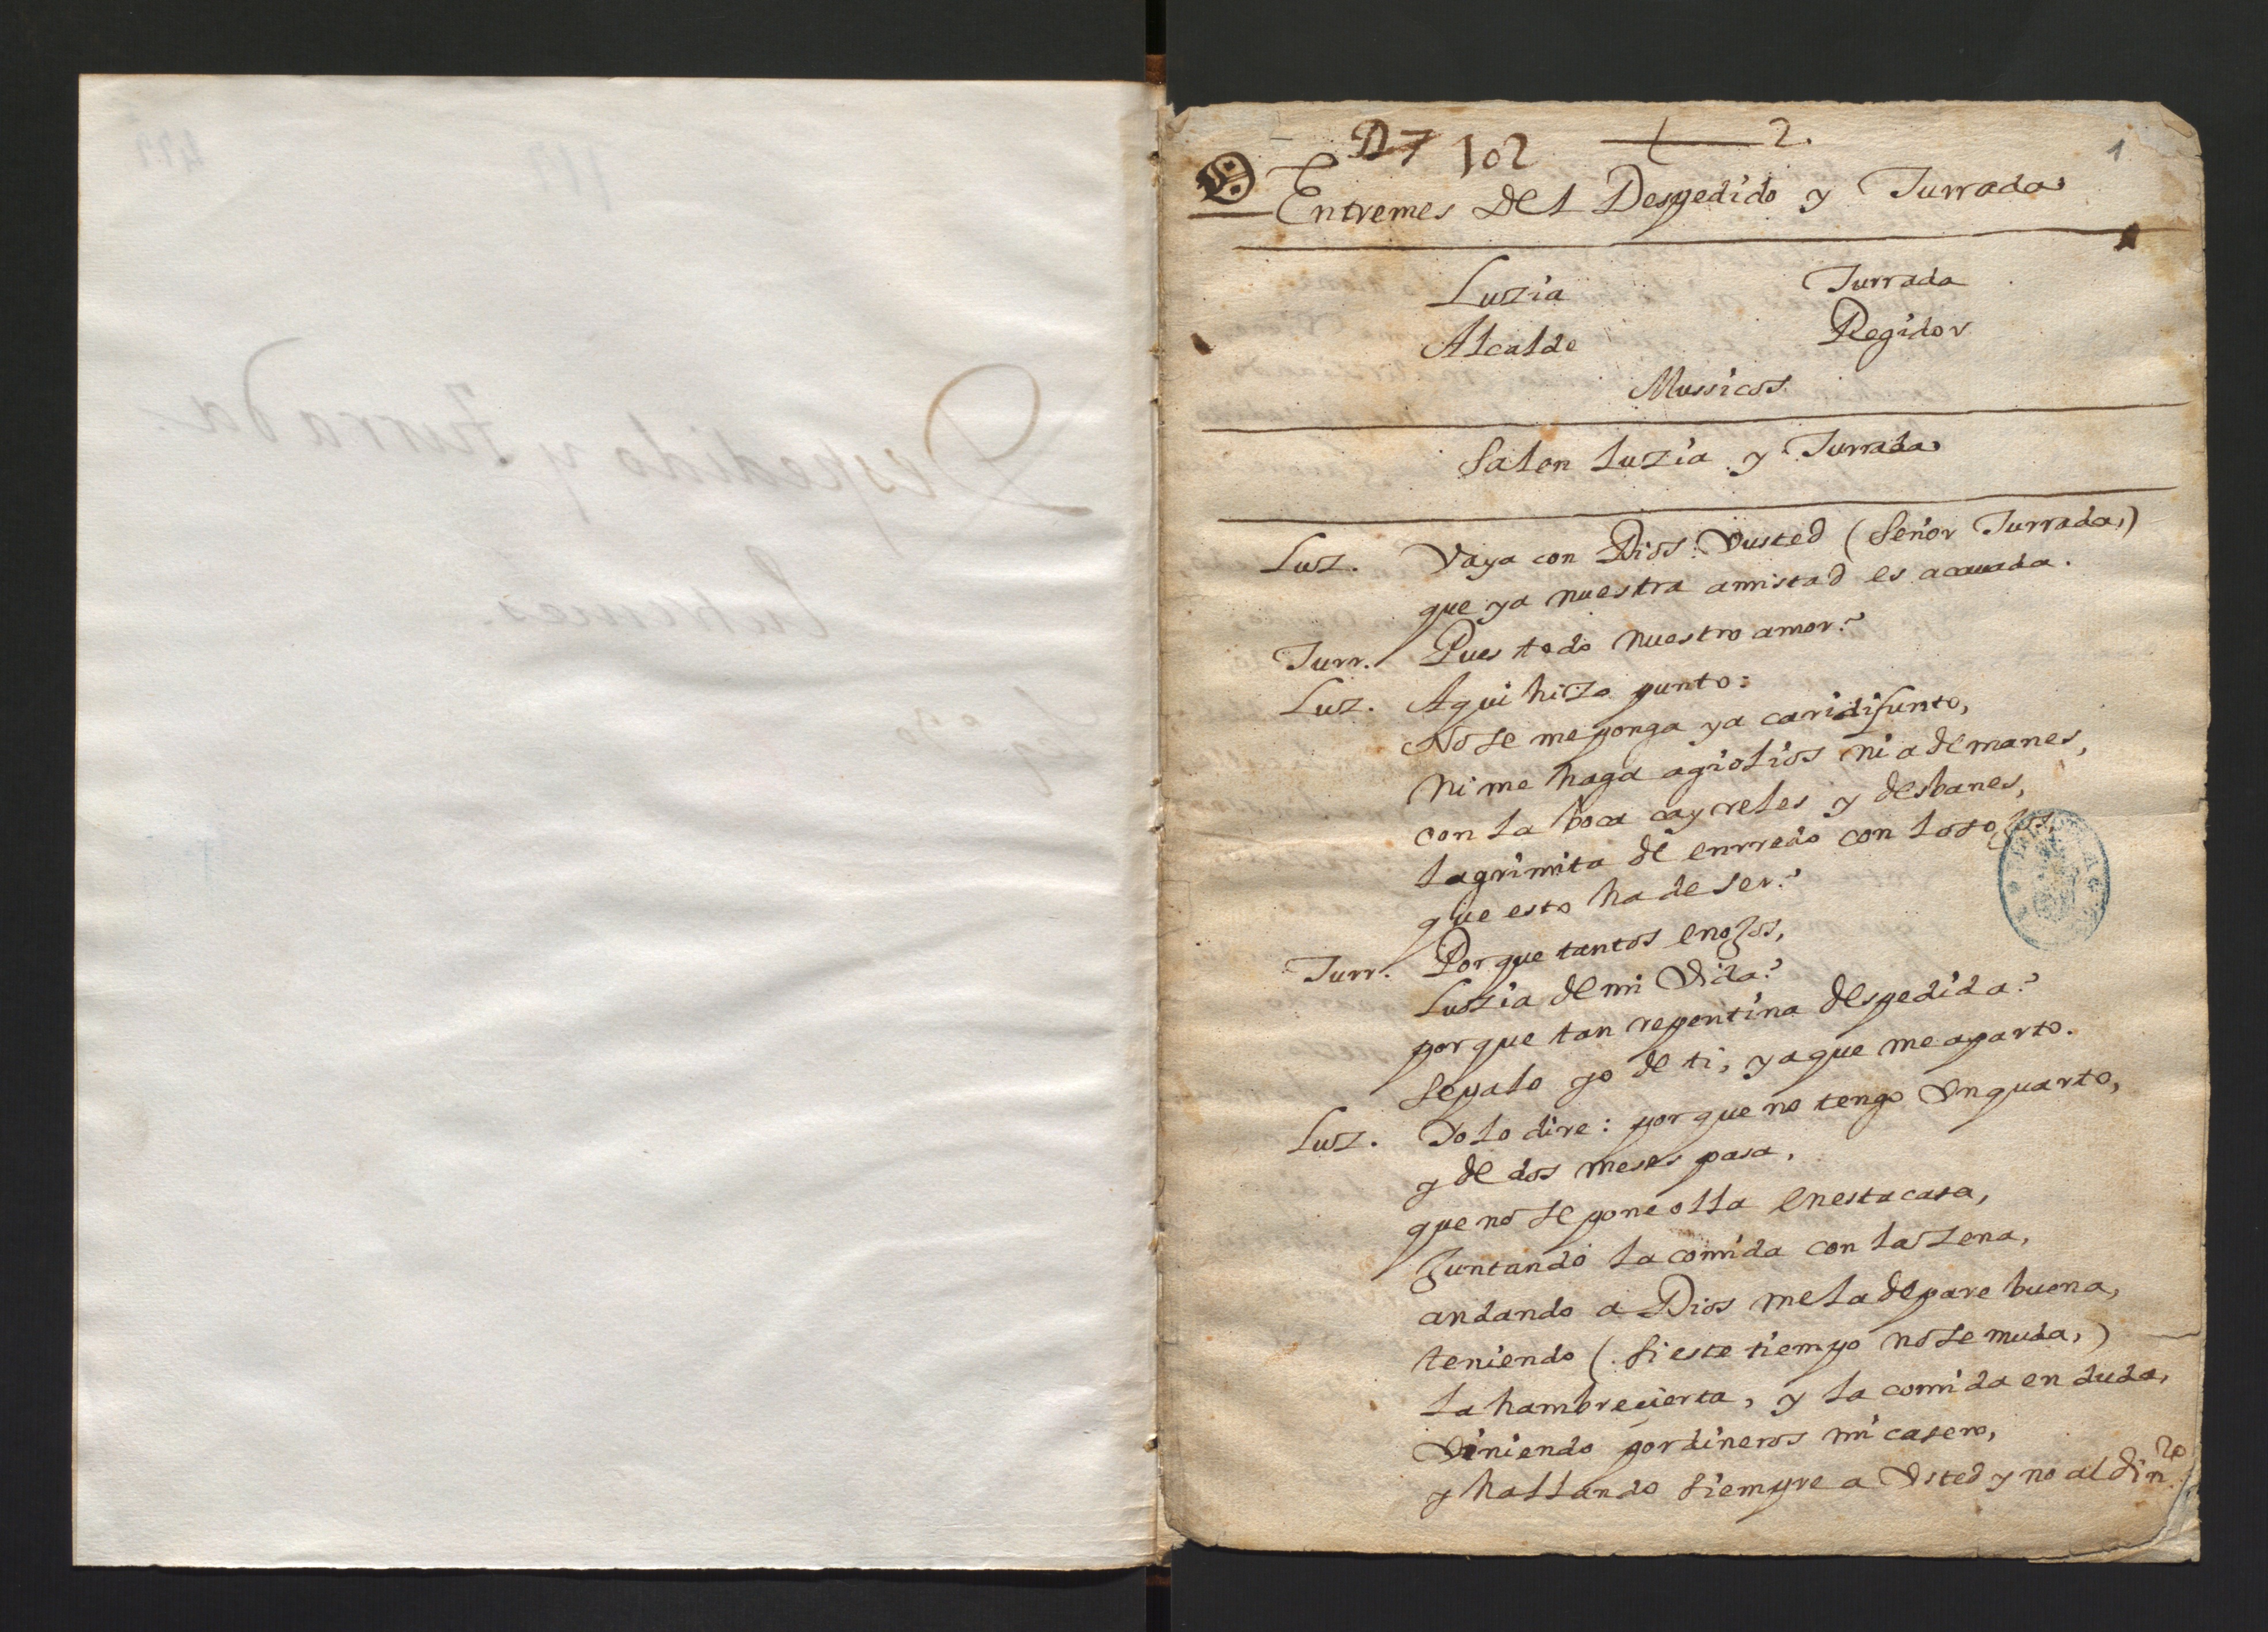 D7 102 2.
1
Entremes Del Despedido y Turrada
Luzia Turrada
Alcalde Regidor
Mussicos
Salen Luzia y Turrada
Luz. Vaya con Dios Vusted (Señor Turrada,)
que ya nuestra amistad es acauada.
Turr. Pues todo nuestro amor?
Luz. Aqui hizo punto:
No se me ponga ya caridifunto,
ni me haga agriolios ni ademanes,
con la boca cayreles y desbanes,
lagrimita de enrredo con los ojos
que esto ha de ser?
Turr. Porque tantos enojos,
Luzia de mi Vida?
porque tan repentina despedida?
Sepalo yo de ti, ya que me aparto.
Luz. Yo lo dire: porque no tengo Vn quarto,
y de dos meses pasa,
que no se pone olla en esta casa,
Juntando la comida con la zena,
andando a Dios me la depare buena,
teniendo (si este tiempo no se muda,)
la hambre cierta, y la comida en duda,
Viniendo por dineros mi casero,
y hallando siempre a Vsted y no al dinro